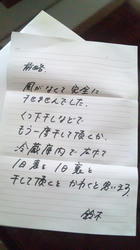 前略
風がなくて完全に
干せませんでした。
くつ下しなどで
もう一度干して頂くか、
冷蔵庫内で右ヶで
1日裏と1日裏と
干して頂くと かわくと思います。
鈴木